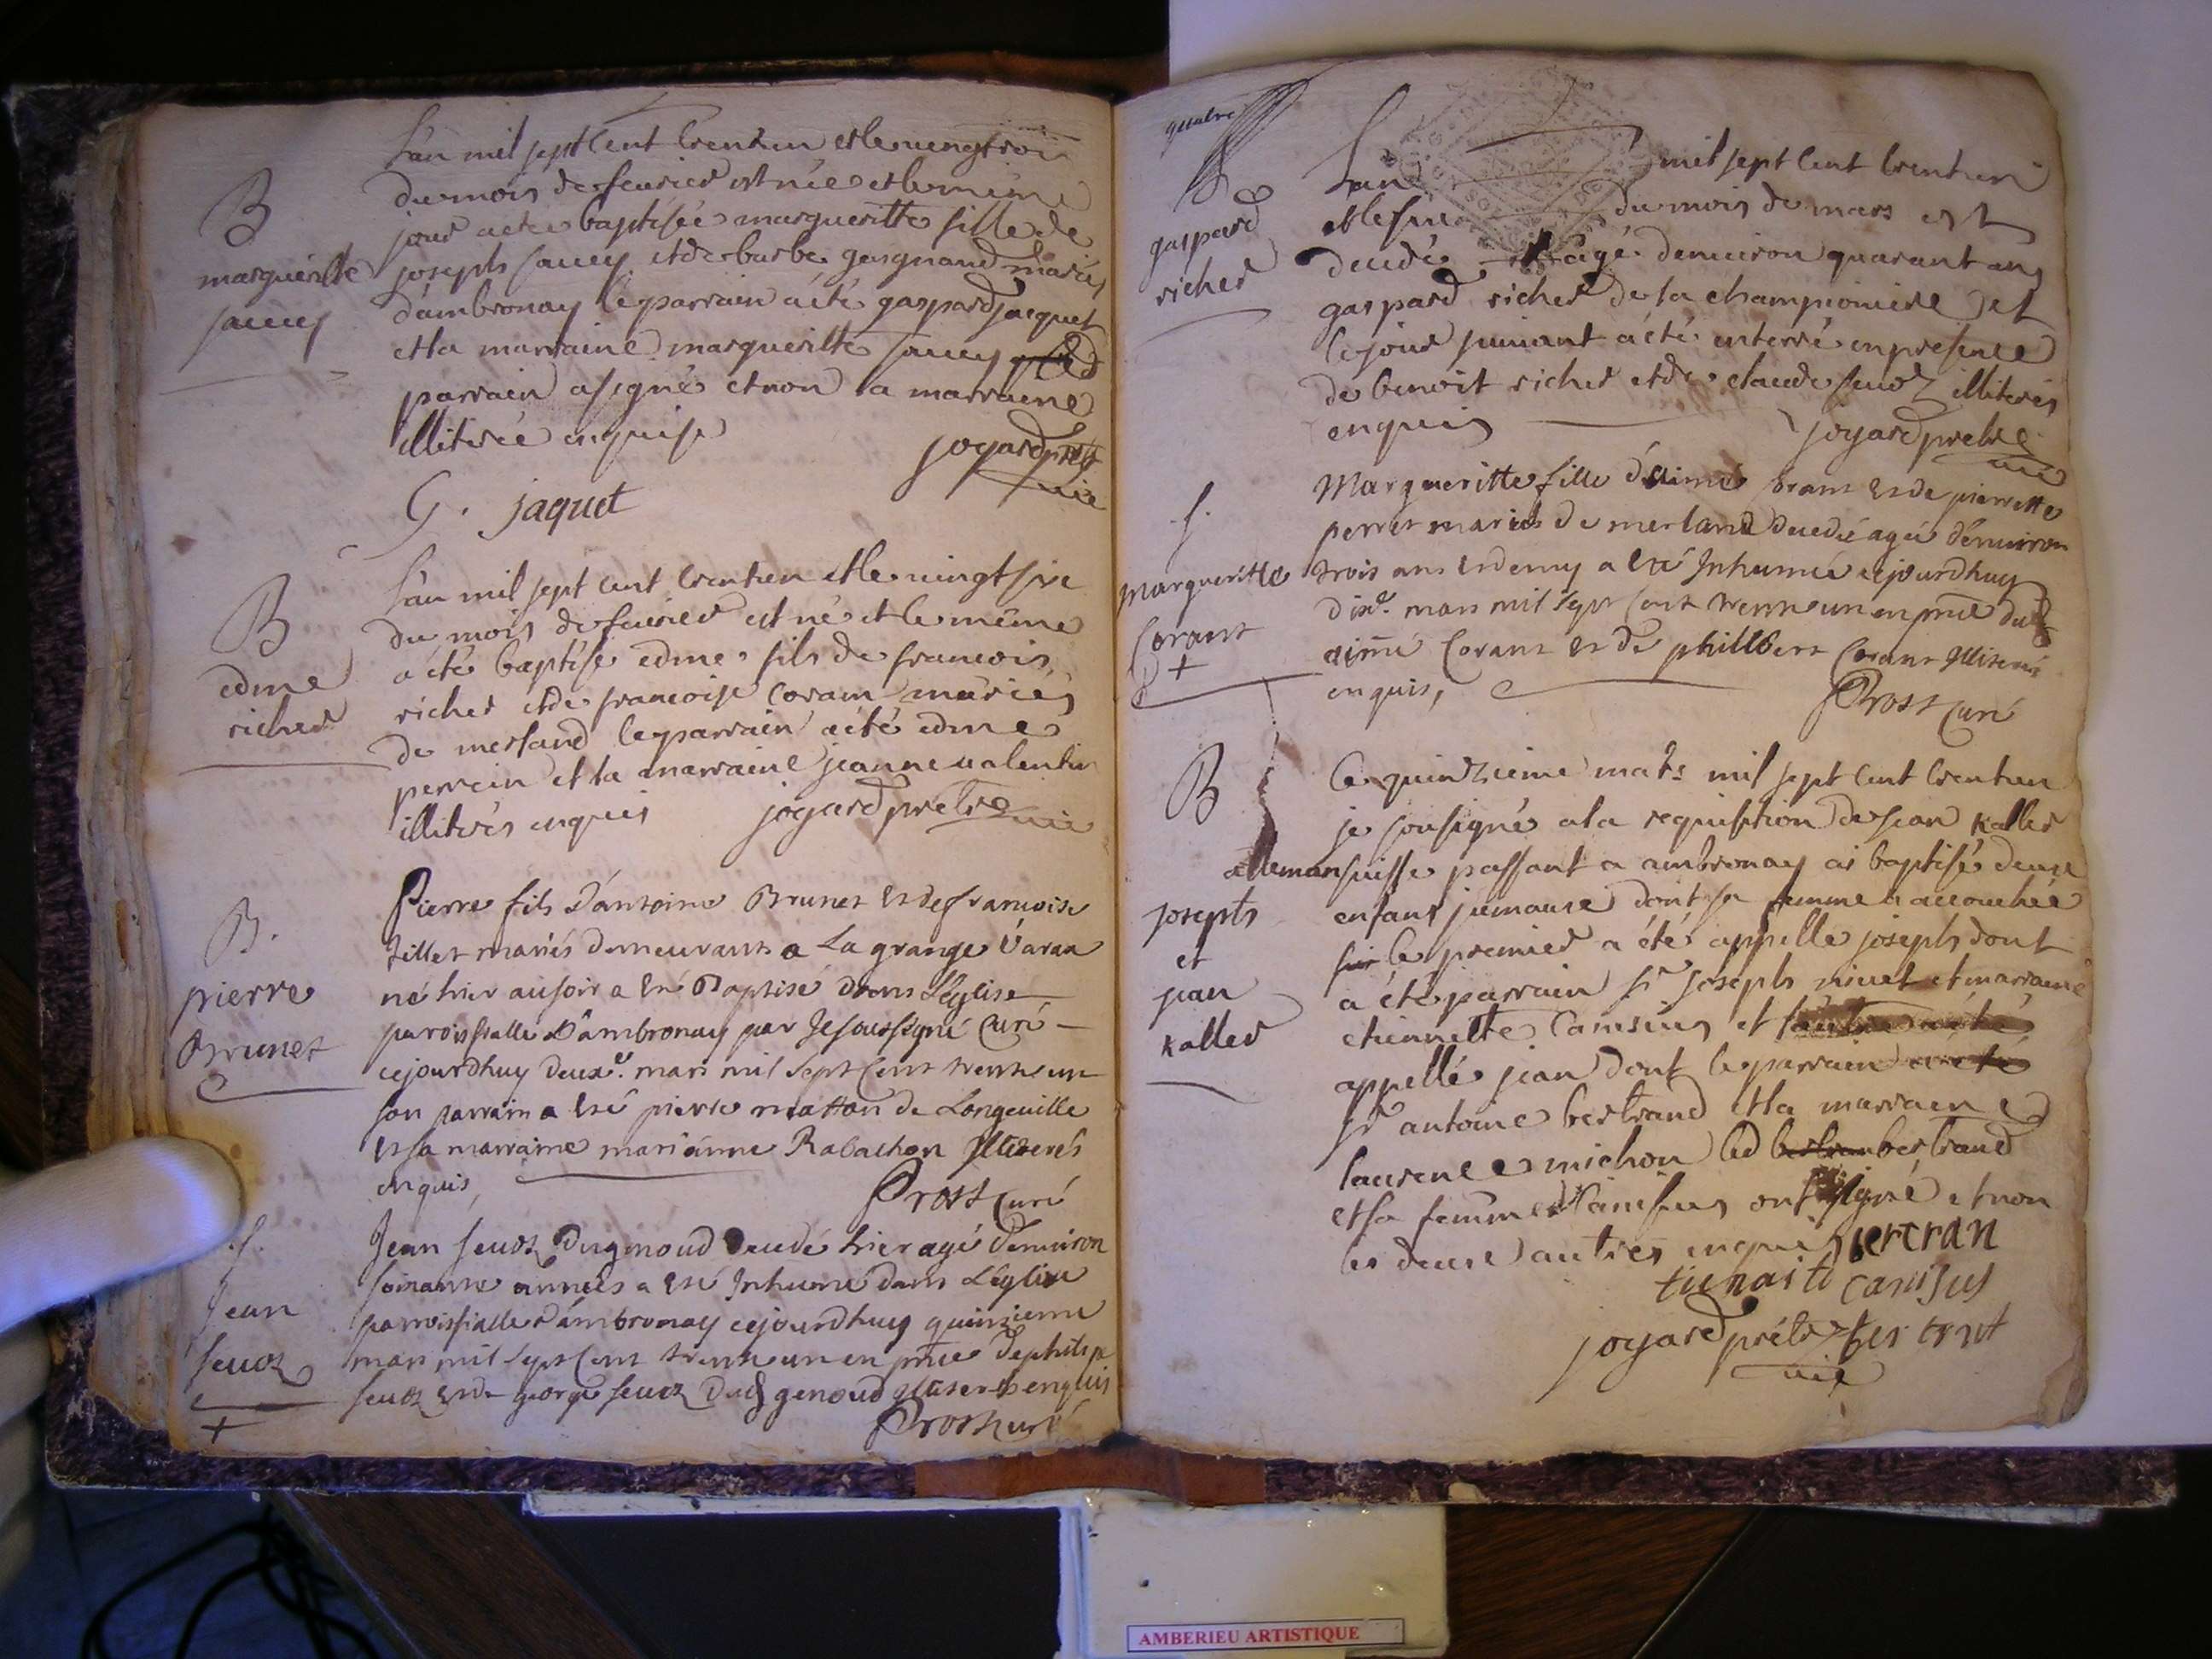 L'an mil sept cent trentun et le vengtrois
du mois de feurier est née et le même
jour a ete baptisée margueritte fille de
B
margueritte
sauey
josepts sauey et de barbe gasgnand mariés
d'ambronay le parrain a été gaspard jacquet
et la marraine margueritte sauey
parrain a signé et non la marraine
illiterée enquise
joyard pretre
vic
G. jaquet
B
edme
richer
L'an mil sept cent trentun et le vingt six
du mois de feurier est né et le même
a été baptisé edme fils de francois
richer et de francoise Coram mariés
de merland le parrain a été edme
perrein et la marraine jeanne ualentin
illiterés enquis joyard pretre vic
B.
pierre
Brunet
Pierre fils d'antoine Brunet et de francoise
tillet mariés demeurants a La grange
né hier au soir a été Baptisé dans L'église
paroissialle d'ambronay par Je soussigné Curé
cejourdhuy deuxe. mars mil sept cent trente un
son parrain a été pierre matton de Longeuille
et sa marraine marianne Rabachon Illiterés
enquis,
Prost Curé
f.
Jean
seuoz
+
Jean seuoz dugenoud decedé hier agé d'enuiron
soixante années a été Inhumé dans L'églize
parroissialle d'ambronay cejourdhuy quinzieme
mars mil sept cent trente un en pnce de philipe
seuoz et de george seuoz dud genoud Illiterés enquis
Prost curé
quatre
gaspard
richer
L'an mil sept cent trentun
et le sixe du mois de mars est
decedé agé denuiron quarant ans
gaspard richer de la championiere et
le jour suiuant a été enterré en presence
de benoit richer et de claude seuoz illiterés
enquis
joyard pretre
vic
f.
Margueritte
Corant
+
Margueritte fille d'aimé Corant et de pierrette
perret mariés de merland decedé agée d'enuiron
trois ans et demy a été Inhumée cejourdhuy
dixe. mars mil sept cent trente un en pnce dud
aimé Corant et de phillibert Corant Illiterés
enquis,
Prost Curé
B
josepts
et
jean
Kaller
Le quinzieme mars mil sept cent trentun
je sousigné a la requisition de jean Kaller
alleman suisse passant a ambronay ai baptisé deux
enfans jumaux dont sa femme a accouchée
le premier a été appellé josepts dont
a été parrain sr josepts niuet et marraine
etiennette Canisius et l'autre a été
appellé jean dont le parrain a été
sr antoine bertrand et la marraine
laurence michon led bertrand
et sa femme Canisius ont signé et non
les deux autres enquis bertran
tienaite canisus
joyard pretre
vic
AMBERIEU ARTISTIQUE